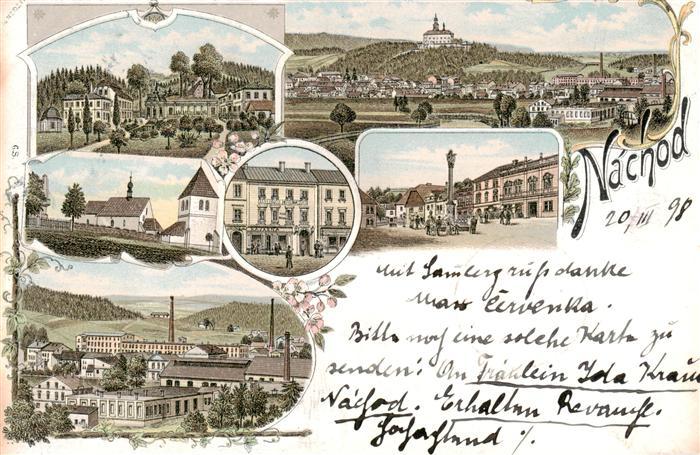 Náchod
20/III 98
Mit Samlergruß danke
Max Červenka.
Bitte noch eine solche Karte zu
senden! An Fräulein Ida Kraus
Náchod. Erhalten Revanche.
Hochachtend